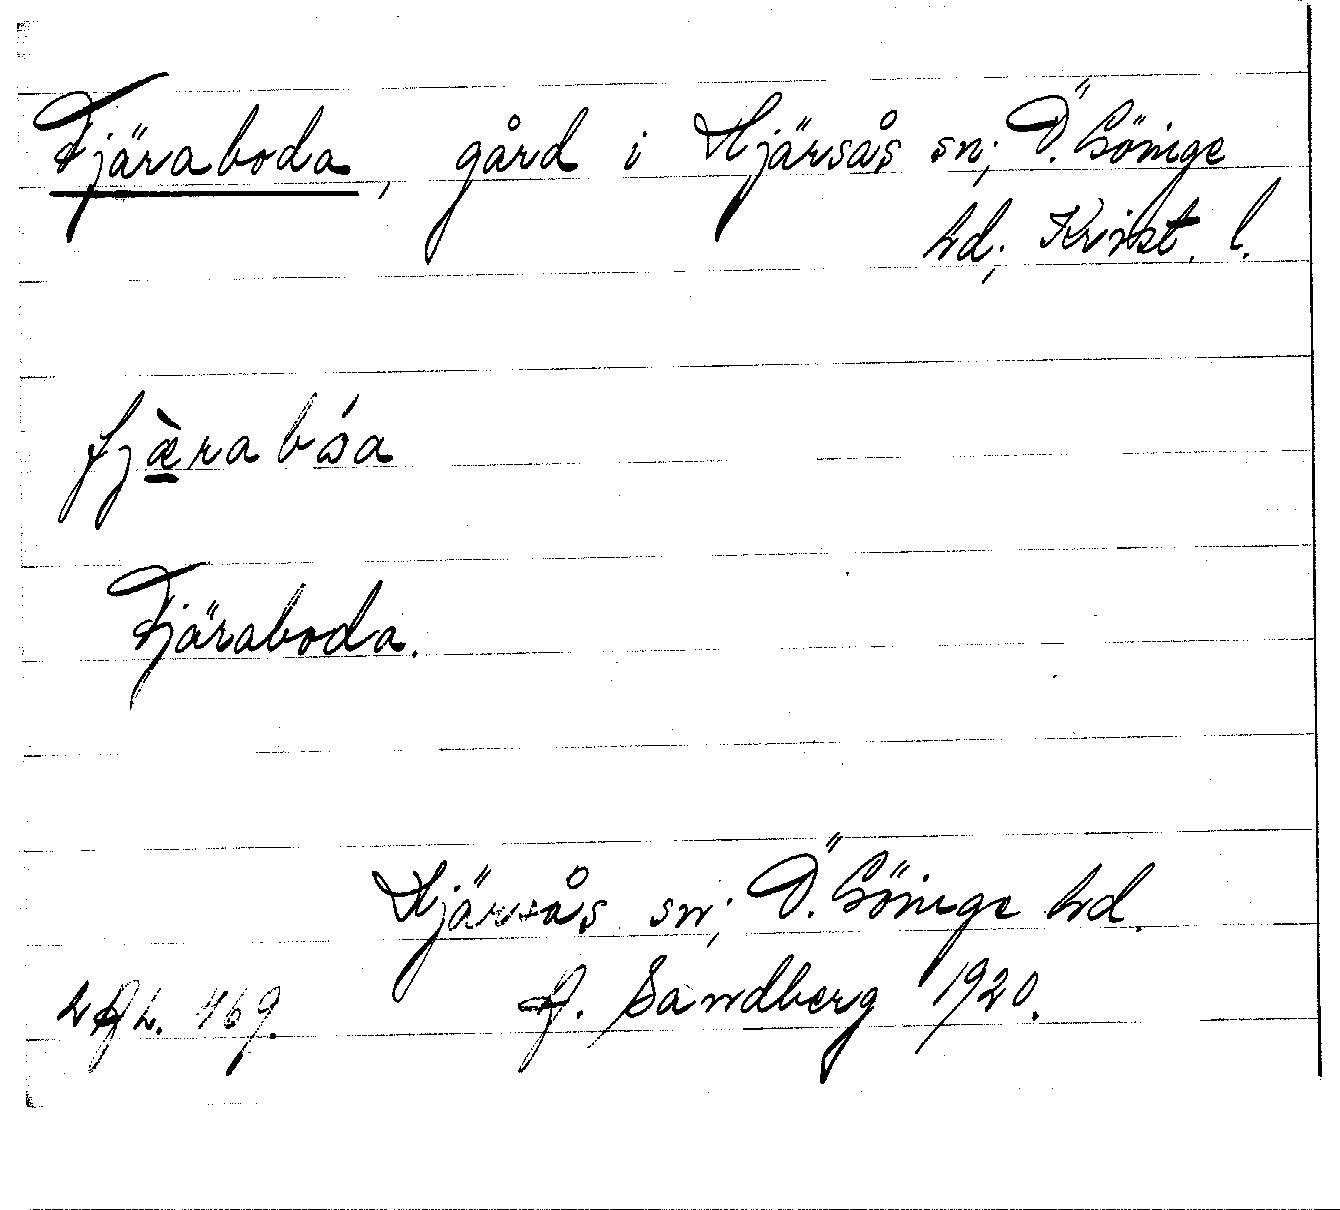 Fjäraboda, gård i Hjärsås sn; Ö. Göinge
hd; Krist. l.
fjæ̀rabóa
Fjäraboda.
Hjärsås sn; Ö. Göinge hd.
Sandberg 1920.